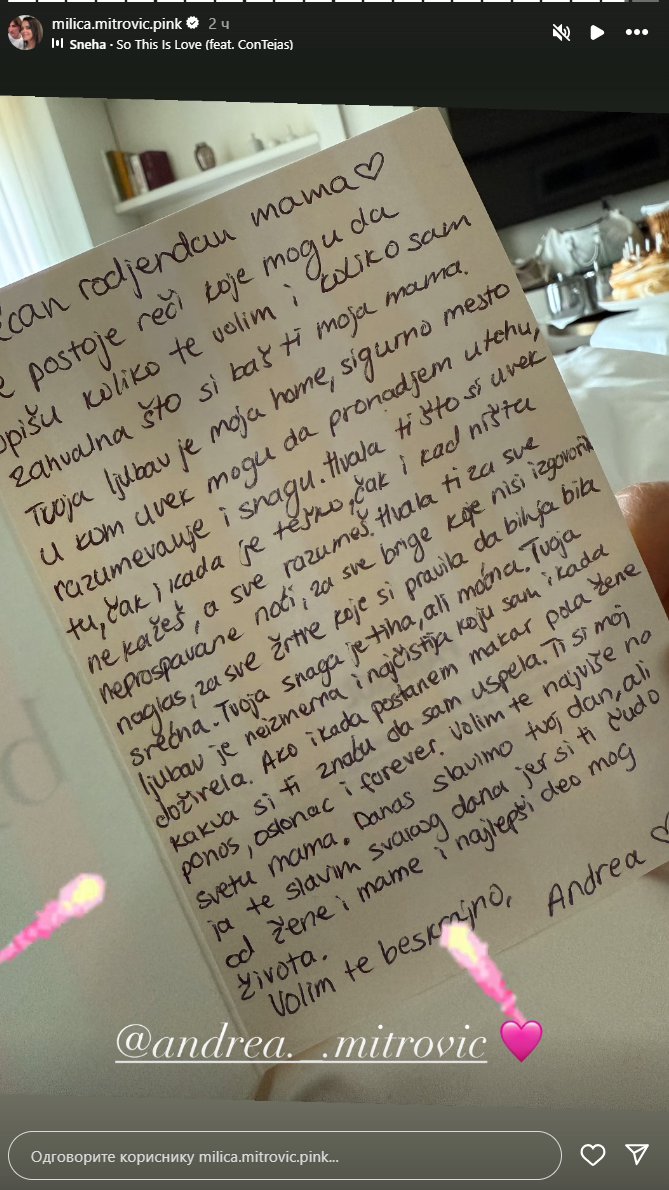 milica.mitrovic.pink 2 ч
Sneha · So This Is Love (feat. ConTejas)
rodjendan mama♡
postoje reči koje mogu da
opišu koliko te volim i koliko sam
zahvalna što si baš ti moja mama.
Tvoja ljubav je moja home, sigurno mesto
u kom uvek mogu da pronadjem utehu,
razumevanje i snagu. Hvala ti što si uvek
tu, čak i kada je teško, čak i kad ništa
ne kažeš, a sve razumeš. Hvala ti za sve
neprospavane noći, za sve brige koje nisi izgovorila
naglas, za sve žrtve koje si pravila da bih ja bila
srećna. Tvoja snaga je tiha, ali moćna. Tvoja
ljubav je neizmerna i najčistija koju sam ikada
doživela. Ako ikada postanem makar pola žene
kakva si ti znaću da sam uspela. Ti si moj
ponos, oslonac i forever. Volim te najviše na
svetu mama. Danas slavimo tvoj dan, ali
ja te slavim svakog dana jer si ti čudo
od žene i mame i najlepši deo mog
života.
Volim te beskrajno, Andrea ♡
@andrea._.mitrovic
Одговорите кориснику milica.mitrovic.pink...